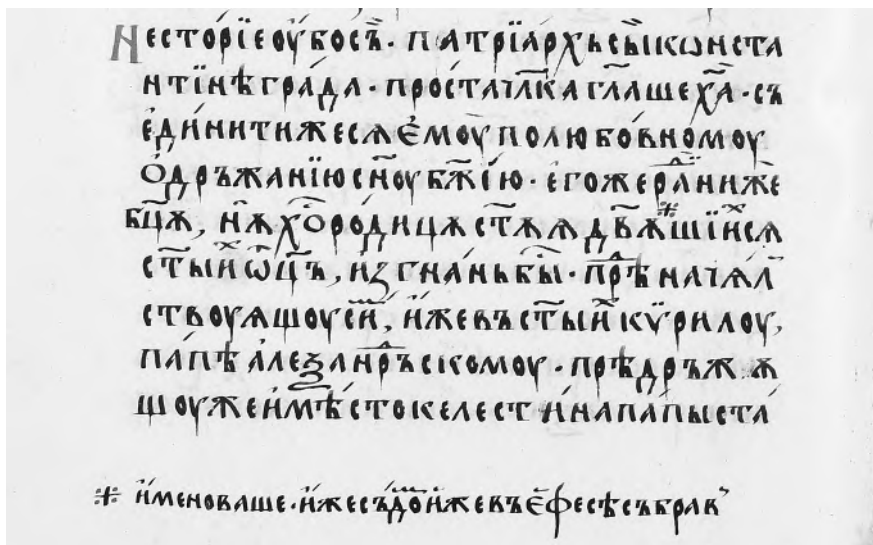 Несто́рїе оу҆́бо съ̀. патрїа́рхь сы̀ кѡнста
нтїнѣ гра́да. про́ста чл҃ка гл҃аше х҃а. съ
є҆ди́нити же сѧ є҆моу̀ по любо́вномоу
ѻ҆дръжанїю сн҃оу бж҃їю. є҆гоже ра́ди ниже
бц҃ѫ, нѫ хр҃оро́дицѫ ст҃ѫѧ дв҃ѫ ※ и҆́же
ст҃ыи ѡ҆ц҃ъ, и҆згна́нь бы̑. прѣначѧл
ствоуѧшоу се́и, и҆́же въ ст҃ыи кѵ҆рилоу,
па́пѣ а҆леѯан҆дръскомоу. прѣдръжѫ
шоу же и҆ мѣ́сто келести́на папы ста́
※ и҆меноваше. и҆́же съ́доу и҆же въ є҆фесѣ събрав